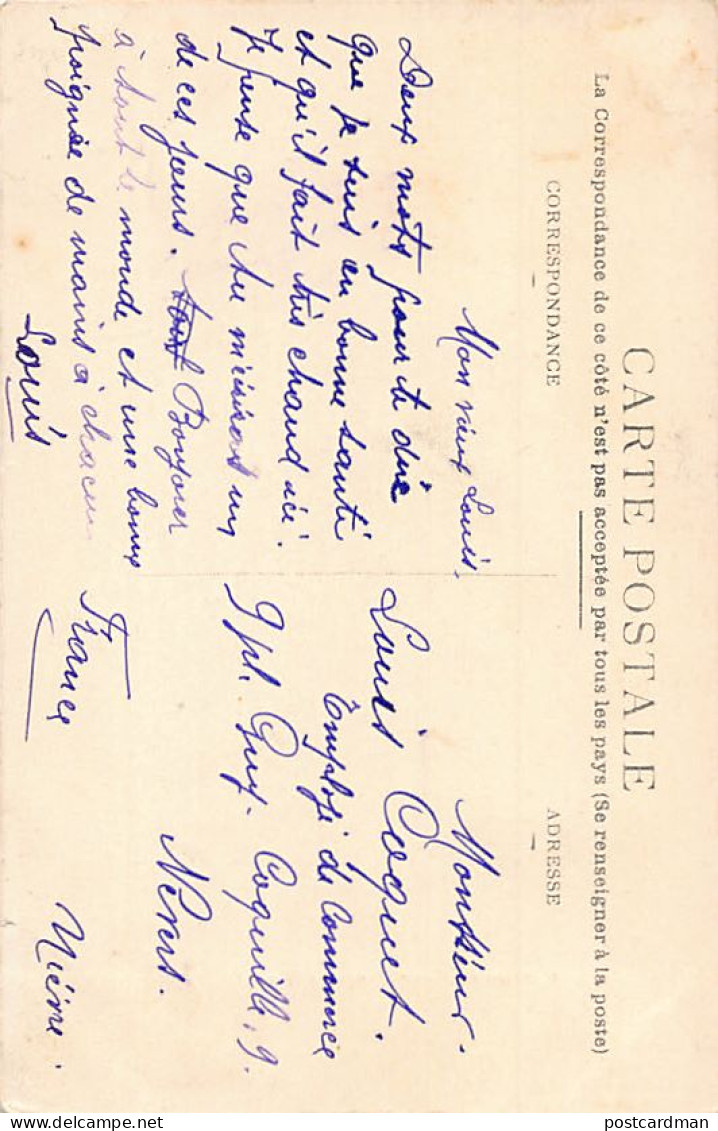 CARTE POSTALE
La Correspondance de ce côté n'est pas acceptée par tous les pays (Se renseigner à la poste)
CORRESPONDANCE
ADRESSE
Mon vieux Louis,
Deux mots pour te dire
que je suis en bonne santé
et qu'il fait très chaud ici.
Je pense que tu m'écriras un
de ces jours. Bonjour
à tout le monde et une bonne
poignée de mains à chacun
Louis
Monsieur.
Louis Coquet.
Employé de Commerce
9 pl. Guy. Coquille, 9.
Nevers.
Nièvre.
France
postcardman